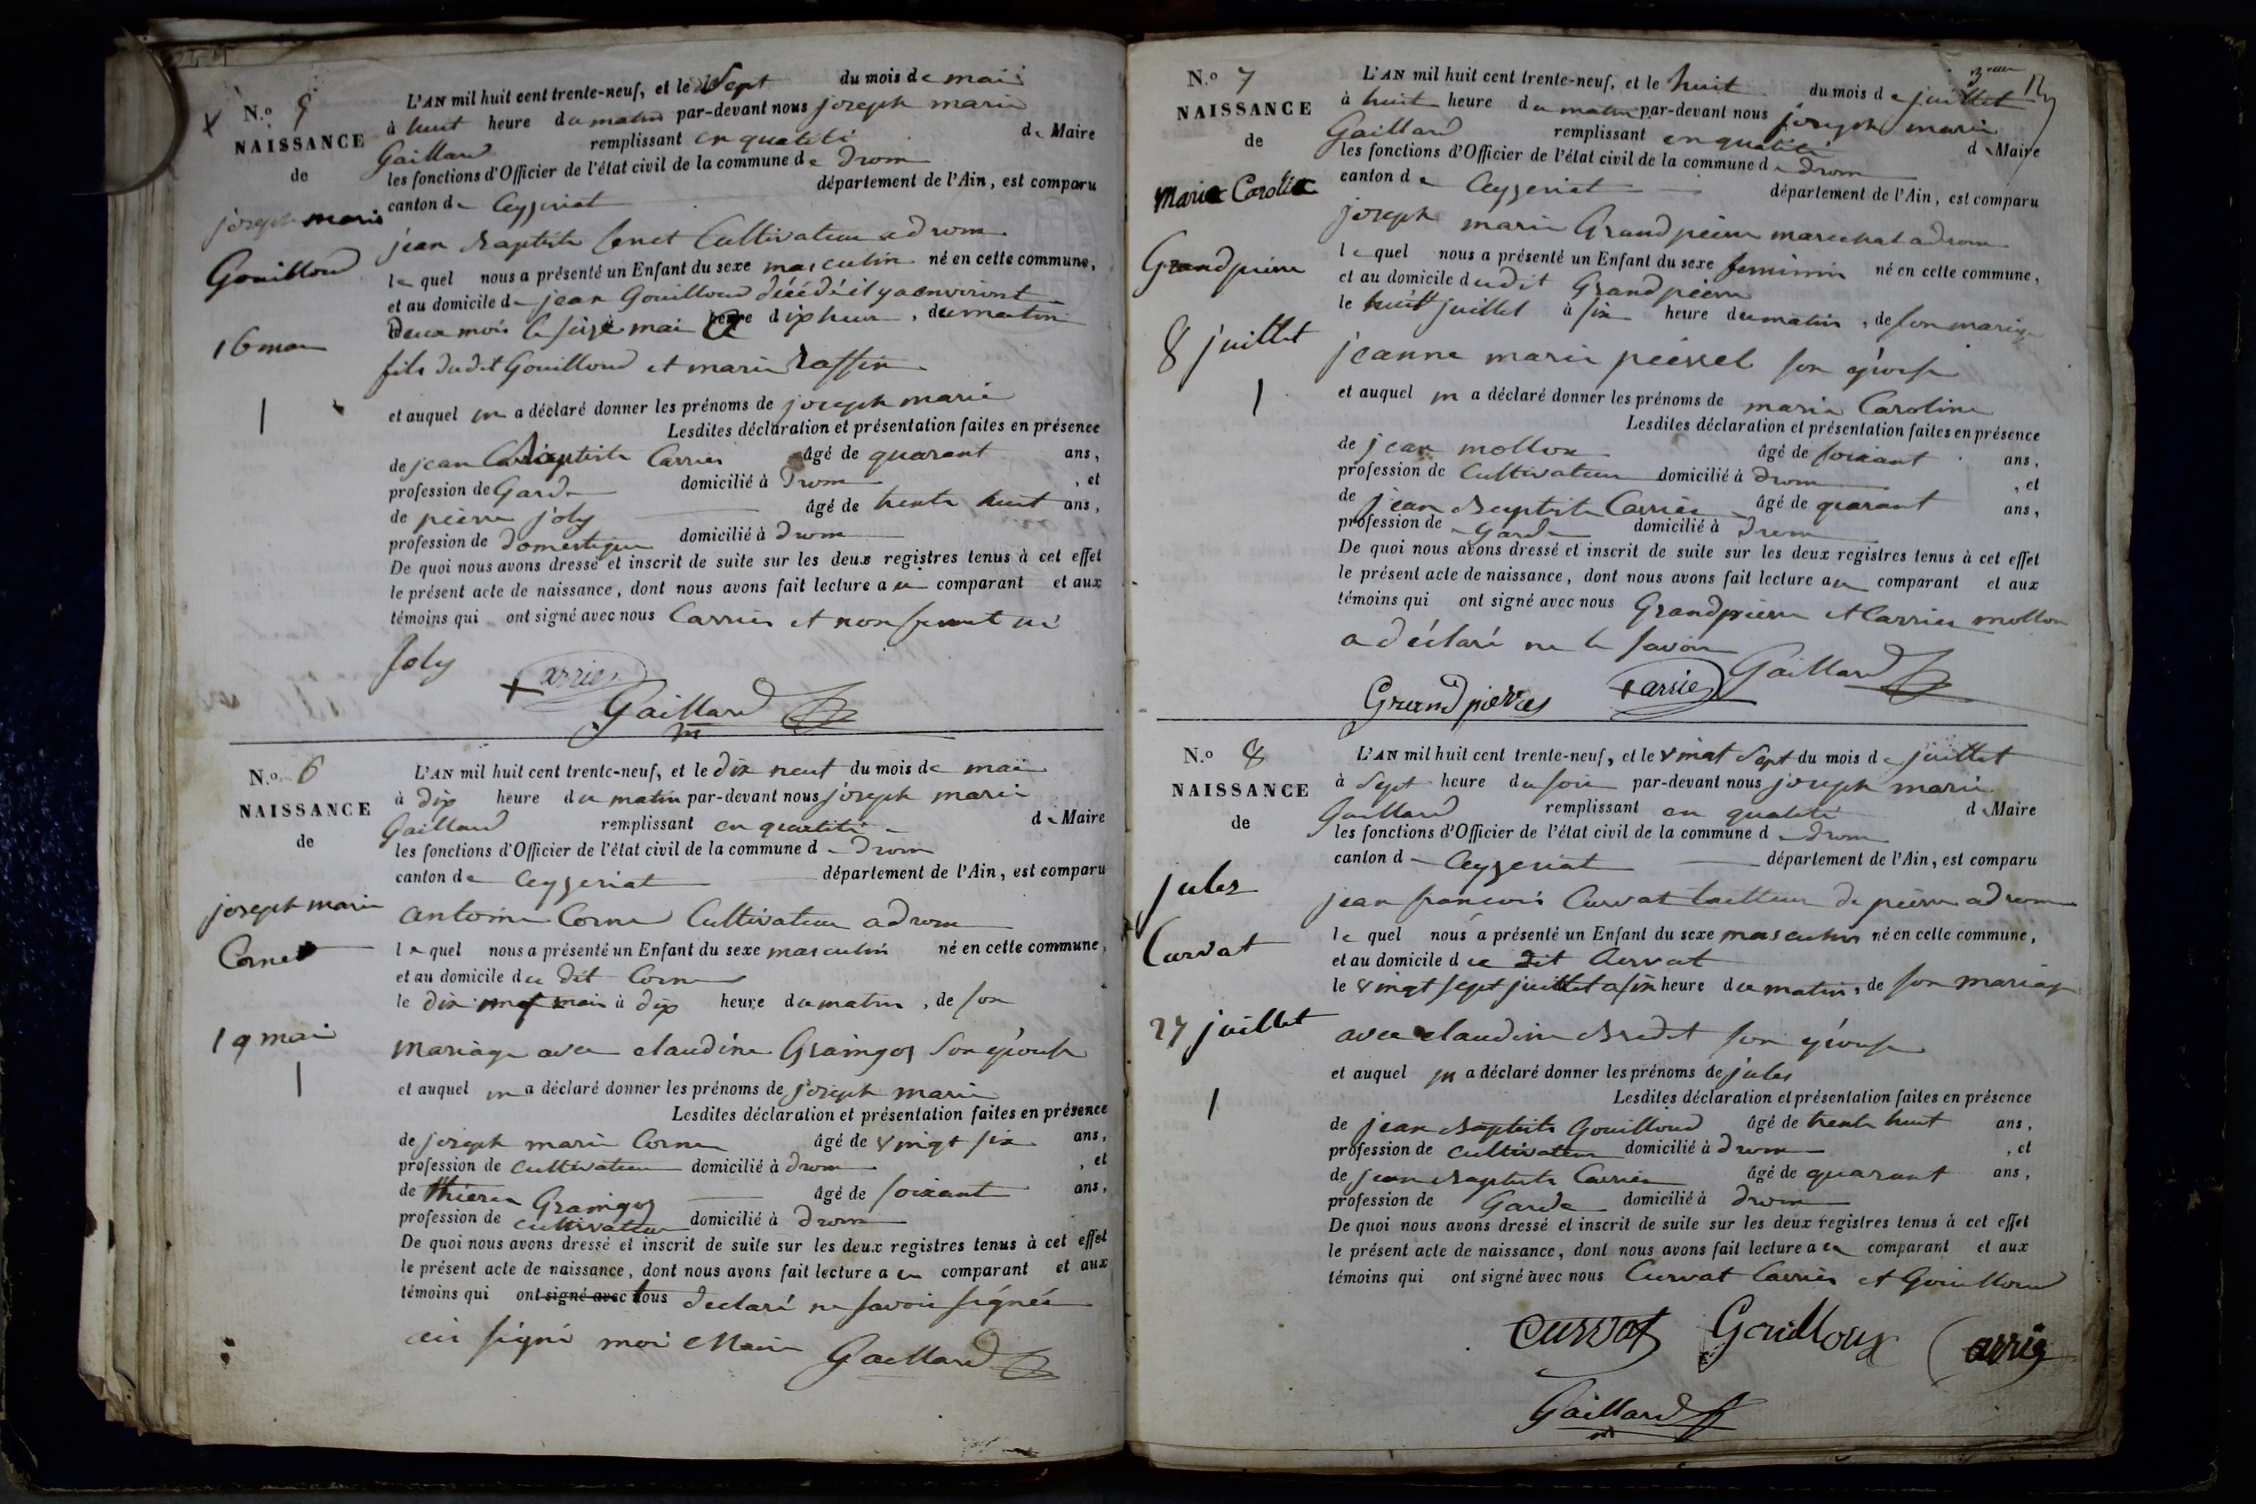 N.o 5
NAISSANCE
de
joseph marie
Gouilloud
16 mai
L'AN mil huit cent trente-neuf, et le Sept du mois de mai
à huit heure du matin par-devant nous joseph marie
Gaillard remplissant en qualité de Maire
les fonctions d'Officier de l'état civil de la commune de Drom
canton de Ceyzeriat département de l'Ain, est comparu
jean Baptiste Cultivateur a drom
lequel nous a présenté un Enfant du sexe masculin né en cette commune,
et au domicile de jean Gouilloud décédé il y a environt
deux mois le seize mai heure dix heur, du matin
fils dudit Gouilloud et marie Raffin
et auquel on a déclaré donner les prénoms de joseph marie
Lesdites déclaration et présentation faites en présence
de jean Baptiste Carrier âgé de quarant ans,
profession de Garde domicilié à Drom, et
de pierre joly âgé de trente huit ans,
profession de domestique domicilié à drom
De quoi nous avons dressé et inscrit de suite sur les deux registres tenus à cet effet
le présent acte de naissance, dont nous avons fait lecture au comparant et aux
témoins qui ont signé avec nous Carrier et non ni
joly
Carrier
Gaillard
N.o 6
NAISSANCE
de
joseph marie
Corne
19 mai
L'AN mil huit cent trente-neuf, et le dix neuf du mois de mai
à dix heure du matin par-devant nous joseph marie
Gaillard remplissant en qualité de Maire
les fonctions d'Officier de l'état civil de la commune de Drom
canton de Ceyzeriat département de l'Ain, est comparu
antoine Corne Cultivateur a drom
lequel nous a présenté un Enfant du sexe masculin né en cette commune,
et au domicile du dit Corne
le dix neuf mai à dix heure du matin, de son
mariage avec claudine Graingos son epouse
et auquel on a déclaré donner les prénoms de joseph marie
Lesdites déclaration et présentation faites en présence
de joseph marie Corne âgé de vingt six ans,
profession de cultivateur domicilié à drom, et
de Graingos âgé de soixant ans,
profession de cultivateur domicilié à drom
De quoi nous avons dressé et inscrit de suite sur les deux registres tenus à cet effet
le présent acte de naissance, dont nous avons fait lecture au comparant et aux
témoins qui ont signé avec tous declaré ne savoir signée
signé moi Maire Gaillard
N.o 7
NAISSANCE
de
Marie Caroline
Grandpierre
8 juillet
L'AN mil huit cent trente-neuf, et le huit du mois de juillet
à huit heure du matin par-devant nous joseph marie
Gaillard remplissant en qualité de Maire
les fonctions d'Officier de l'état civil de la commune de drom
canton de Ceyzeriat département de l'Ain, est comparu
joseph marie Grandpierre marechal a drom
lequel nous a présenté un Enfant du sexe feminin né en cette commune,
et au domicile dudit Grandpierre
le huit juillet à six heure du matin, de son mariage
jeanne marie son epouse
et auquel on a déclaré donner les prénoms de marie Caroline
Lesdites déclaration et présentation faites en présence
de jean mollon âgé de soixant ans,
profession de Cultivateur domicilié à drom, et
de jean Baptiste Carrier âgé de quarant ans,
profession de Garde domicilié à Drom
De quoi nous avons dressé et inscrit de suite sur les deux registres tenus à cet effet
le présent acte de naissance, dont nous avons fait lecture au comparant et aux
témoins qui ont signé avec nous Grandpierre et Carrier mollon
a déclaré ne le savoir
Gaillard
Grandpierre Carrier
N.o 8
NAISSANCE
de
jules
Curvat
27 juillet
L'AN mil huit cent trente-neuf, et le vingt Sept du mois de juillet
à Sept heure du soir par-devant nous joseph marie
Gaillard remplissant en qualité de Maire
les fonctions d'Officier de l'état civil de la commune de Drom
canton de Ceyzeriat département de l'Ain, est comparu
jean francois Curvat tailleur de pierre a drom
lequel nous a présenté un Enfant du sexe masculin né en cette commune,
et au domicile du dit Curvat
le vingt sept juillet a six heure du matin, de son mariage
avec claudine Bredet son epouse
et auquel on a déclaré donner les prénoms de jules
Lesdites déclaration et présentation faites en présence
de jean Baptiste Gouilloud âgé de trente huit ans,
profession de Cultivateur domicilié à drom, et
de jean Baptiste Carrier âgé de quarant ans,
profession de Garde domicilié à drom
De quoi nous avons dressé et inscrit de suite sur les deux registres tenus à cet effet
le présent acte de naissance, dont nous avons fait lecture au comparant et aux
témoins qui ont signé avec nous Curvat Carrier et Gouilloud
Curvat Gouilloux Carrie
Gaillard